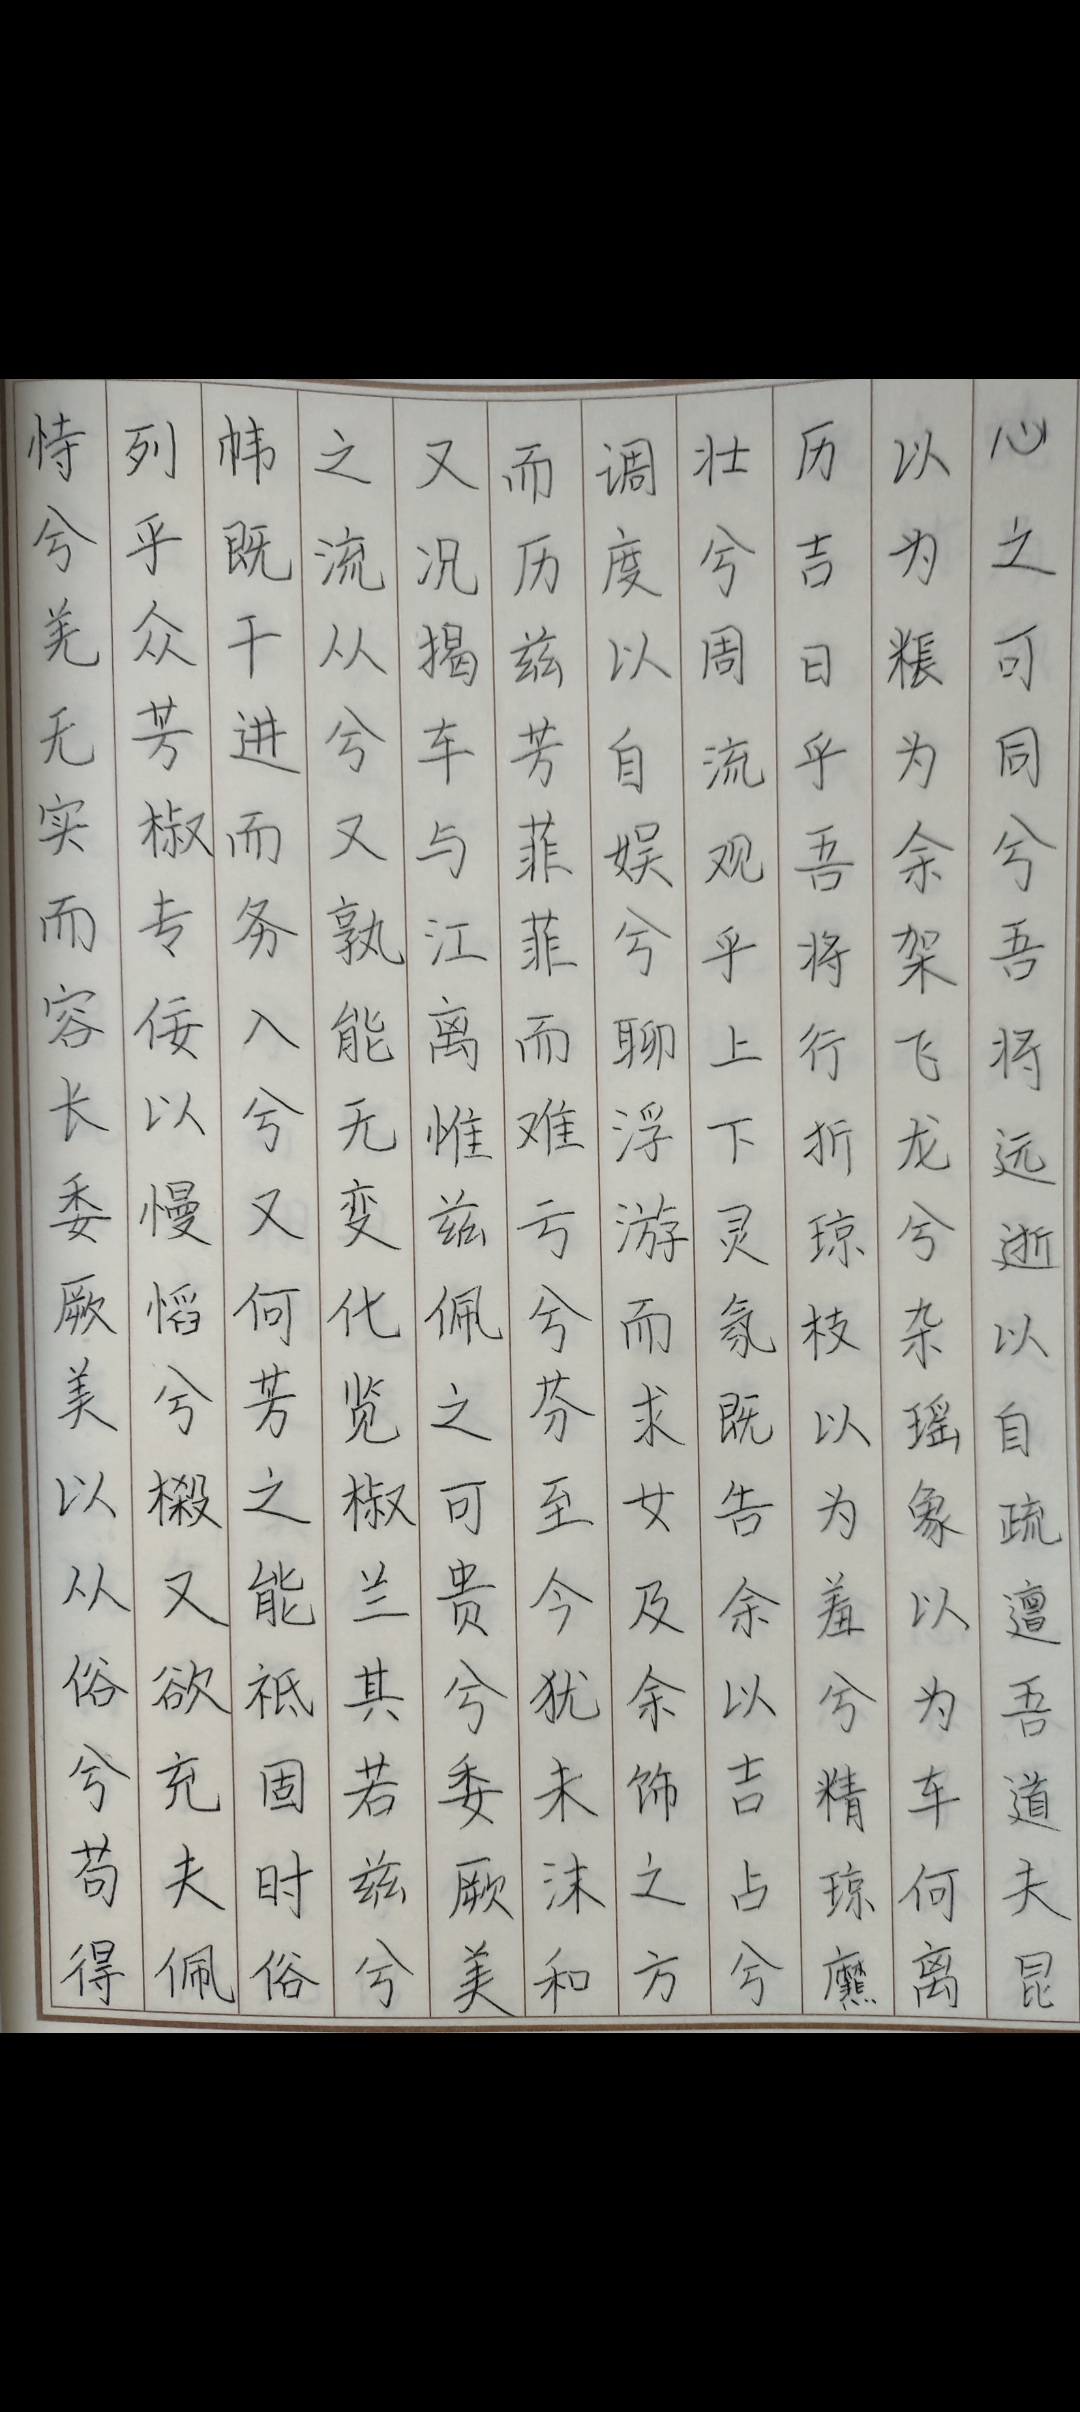 恃兮羌无实而容长委厥美以从俗兮苟得
列乎众芳椒专佞以慢慆兮樧又欲充夫佩
帏既干进而务入兮又何芳之能祗固时俗
之流从兮又孰能无变化览椒兰其若兹兮
又况揭车与江离惟兹佩之可贵兮委厥美
而历兹芳菲菲而难亏兮芬至今犹未沫和
调度以自娱兮聊浮游而求女及余饰之方
壮兮周流观乎上下灵氛既告余以吉占兮
历吉日乎吾将行折琼枝以为羞兮精琼爢
以为粻为余架飞龙兮杂瑶象以为车何离
心之可同兮吾将远逝以自疏邅吾道夫昆